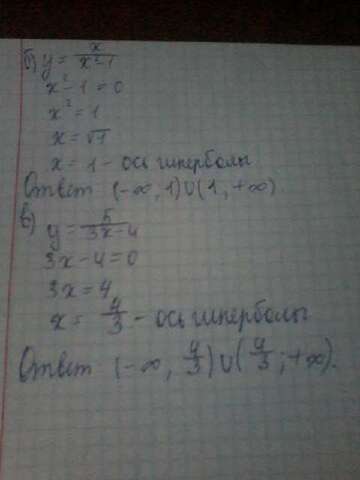 б) y = x/(x²-1)
x² - 1 = 0
x² = 1
x = √1
x = 1 - ось гиперболы
Ответ (-∞, 1) ∪ (1; +∞).
в) y = 5/(3x-4)
3x - 4 = 0
3x = 4
x = 4/3 - ось гиперболы
Ответ (-∞, 4/3) ∪ (4/3; +∞).